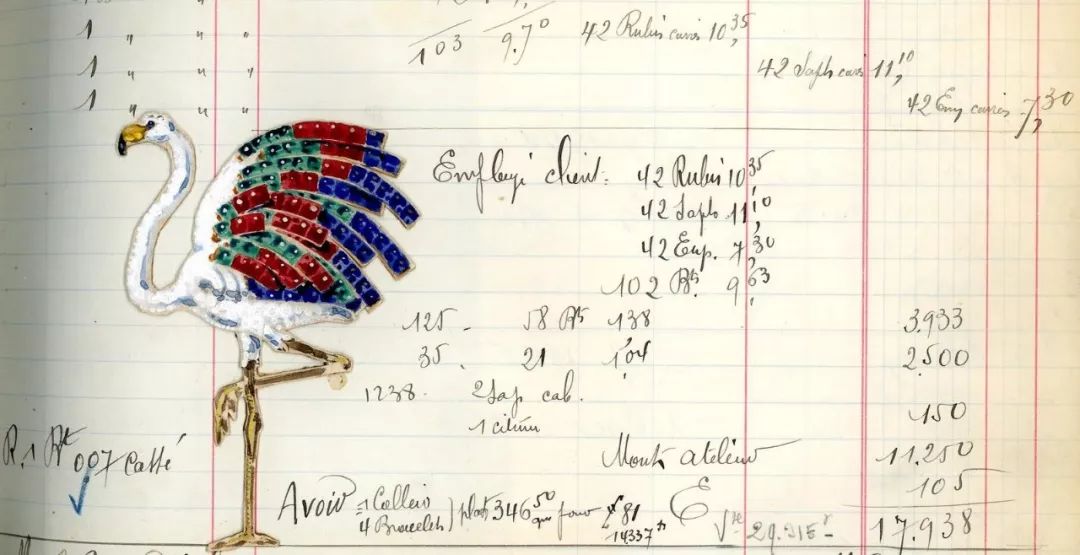 1 " " "
103 9.70 42 Rubis carrés 10,35
1 " " "
42 Saph carrés 11,10
1 " " "
42 Em carrés 7,30
client: 42 Rubis 10,35
42 Saph 11,10
42 Em. 7,30
102 Bts. 9,63
125 - 58 Bts 138 3.933
35. 21 1,04 2.500
1238. 2 Sap cab. 150
1 citrin
Mont atelier 11.250
R. 1 Bt 007 cassé
105
Avoir = 1 Collier
4 Bracelets) plat 346,50 81
14337
E
Vte 29.315 -
17.938